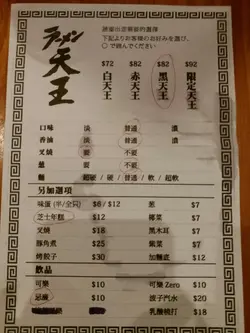 ラーメン
天王
請圈出您需要的選擇
下記よりお客様のお好みを選び、
○で囲んでください
$72 $82 $82 $92
白天王 赤天王 黒天王 限定天王
口味 淡 普通 濃
香油 淡 普通 濃
叉燒 要 不要
蔥 要 不要
麵 超硬 / 硬 / 普通 / 軟 / 超軟
另加選項
味蛋 (半/全只) $8 / $12 蔥 $7
芝士年糕 $12 椰菜 $7
叉燒 $18 黑木耳 $7
豚角煮 $25 $7
烤餃子 $30 加麵底 $12
飲品
可樂 $10 可樂 Zero $10
忌廉 $10 波子汽水 $20
$10 乳酸梳打 $18